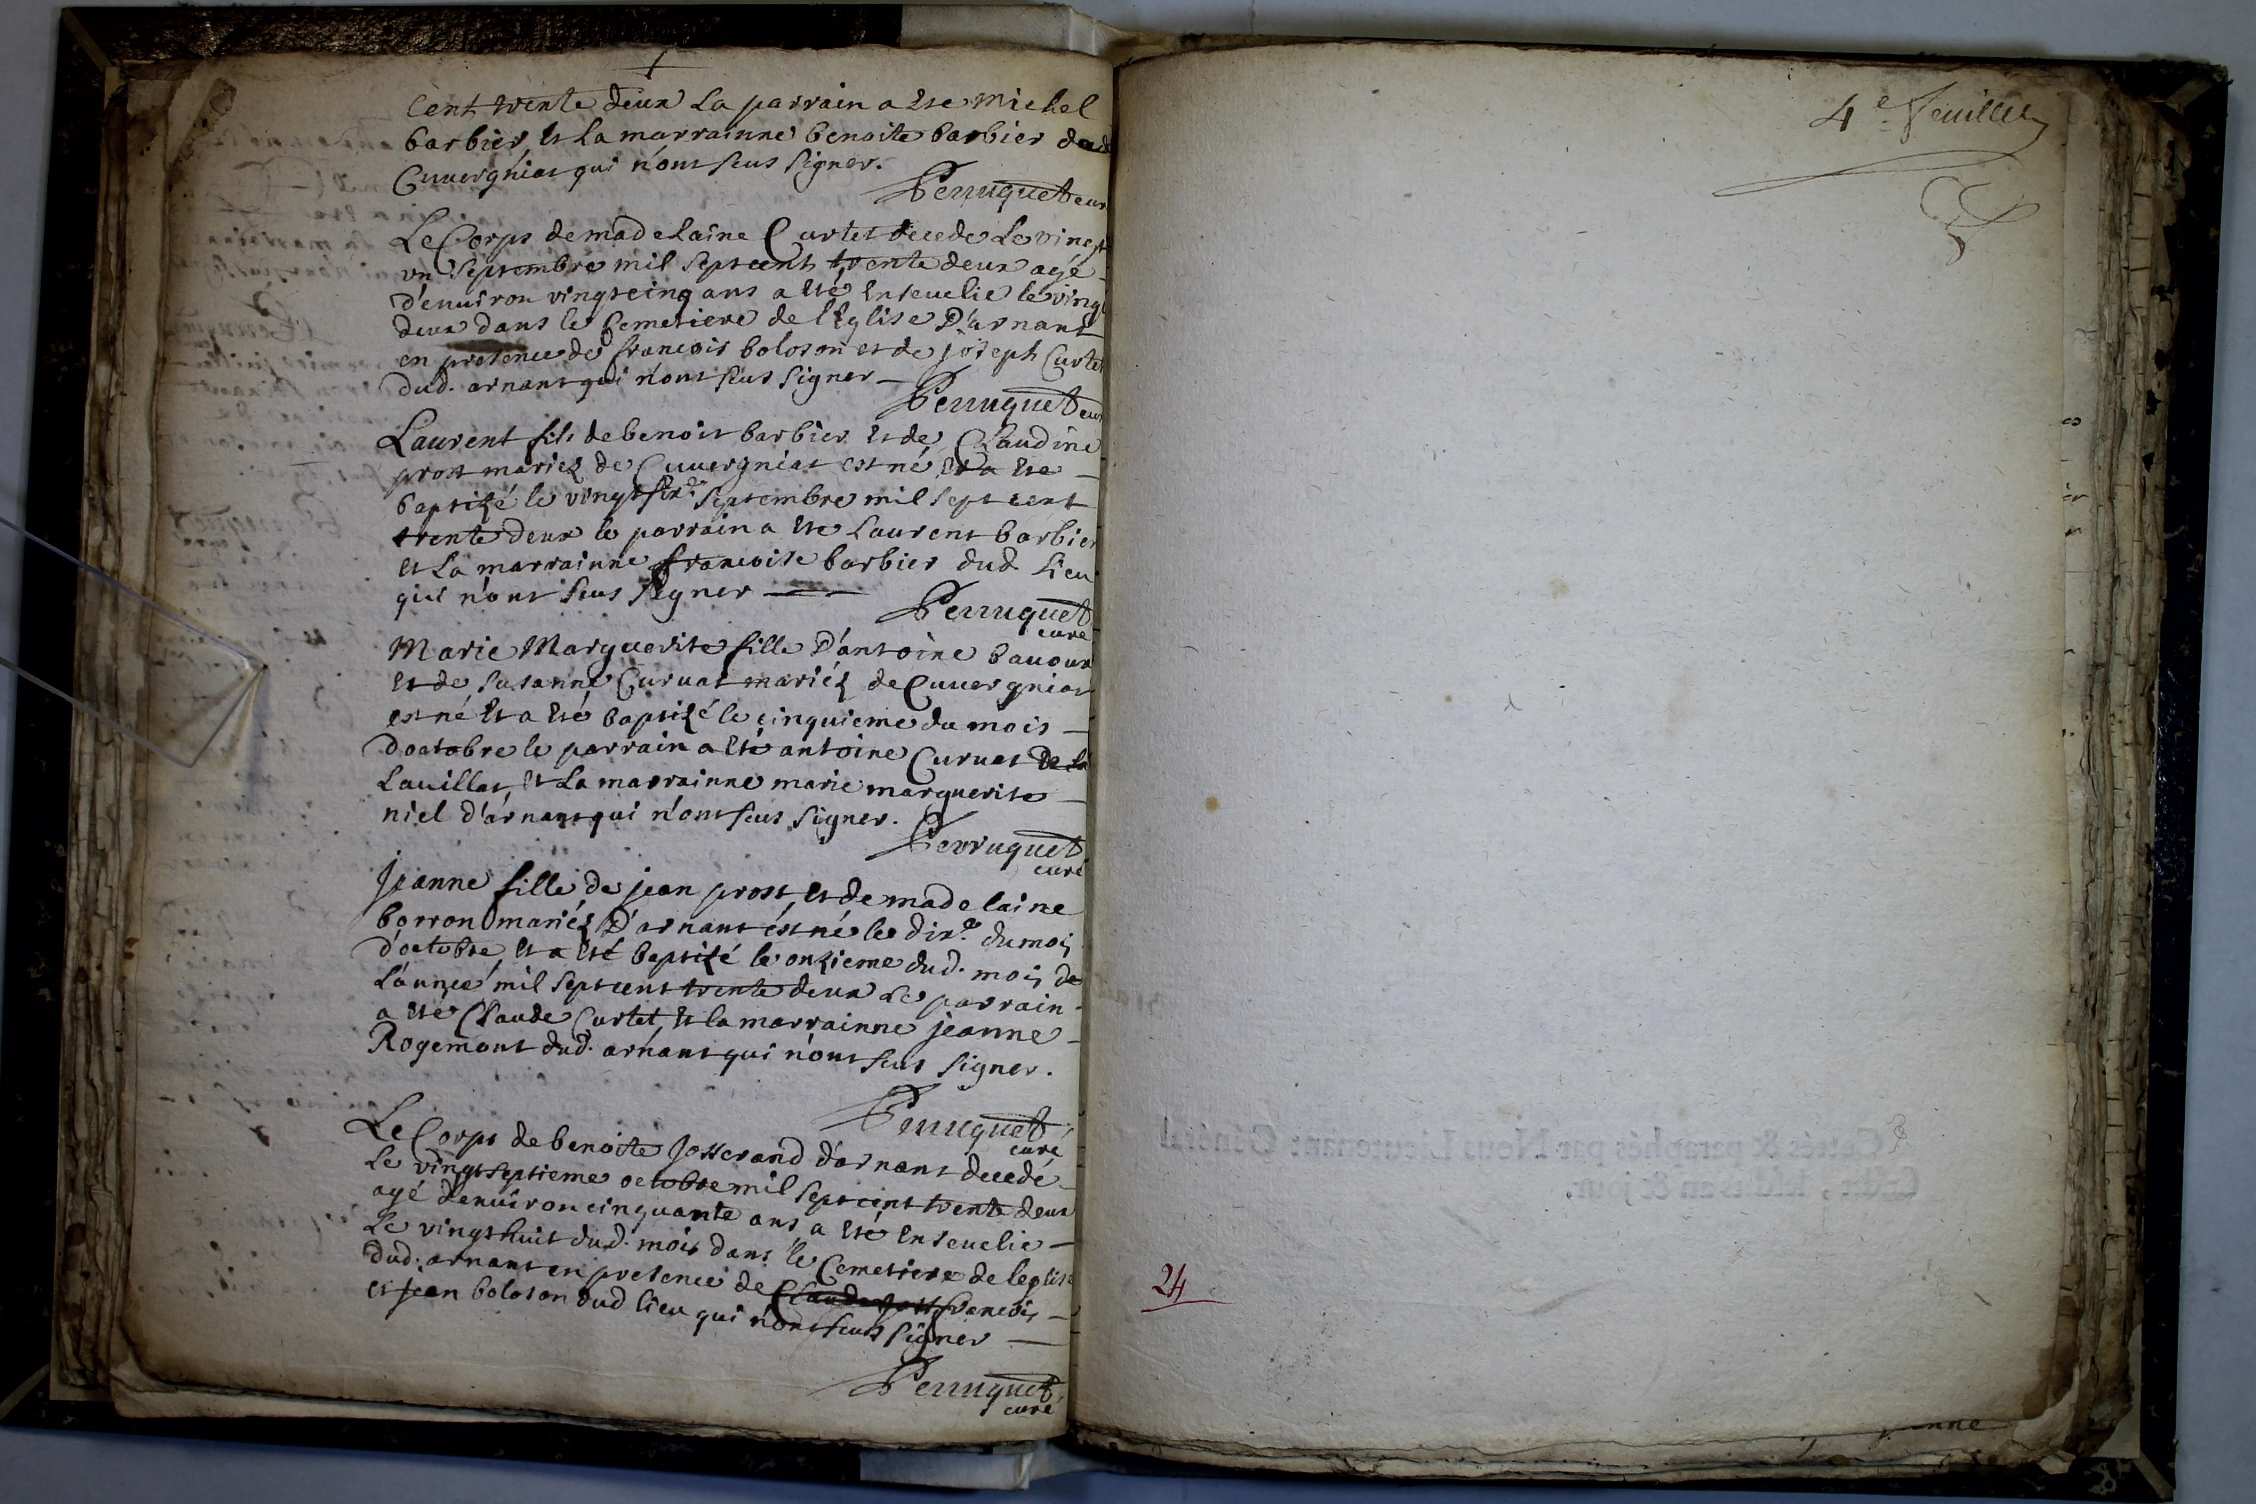 Cent trente deux La parrain a ete Michel
barbier, et La marrainne benoite barbier dud
Cuvergniat qui n'ont seus signer.
Perruquet cur
Le Corps de madelaine Curtet decede Le vingt
vn septembre mil septcent trente deux agé
d'enuiron vingtcinq ans a eté enseuelie le vingt
deux dans le Cemetiere de l'Eglise D'arnant
en presence de francois boloson et de joseph Curtet
dud. arnant qui n'ont seus signer
Perruquet cur
Laurent fils de benoit barbier et de Claudine
prost mariez de Cuvergniat est né, et a ete
baptizé le vingtsix.e septembre mil sept cent
trente deux le parrain a ete Laurent barbier
et La marrainne francoise barbier dud. Lieu
qui n'ont seus signer
Perruquet
curé
Marie Marguerite fille D'antoine bauoux
et de susanne Curuat mariéz de Cuvergniat
est né et a eté baptizé le cinquieme du mois
d'octobre le parrain a eté antoine Curuat de la
Lauillat, et La marrainne marie marguerite
niel d'arnant qui n'ont seus signer.
Perruquet
curé
Jeanne fille de jean prost, et de madelaine
borron mariéz D'arnant ést né le dix.e du mois
d'octobre, et a eté baptizé le onzieme dud. mois de
L'année mil septcent trente deux Le parrain
a eté Claude Curtet, et la marrainne jeanne
Rogemont dud. arnant qui n'ont seus signer.
Perruquet
curé
Le Corps de benoite Josserand d'arnant decedé
Le vingtseptieme octobre mil septcent trente deux
agé d'enuiron cinquante ans, a eté enseuelie
Le vingthuit dud. mois dans le Cemetiere de leglise
dud. arnant en presence de Claude francois
et jean boloson dud lieu qui n'ont seus signer
Perruquet
curé
4.e feuillet
24